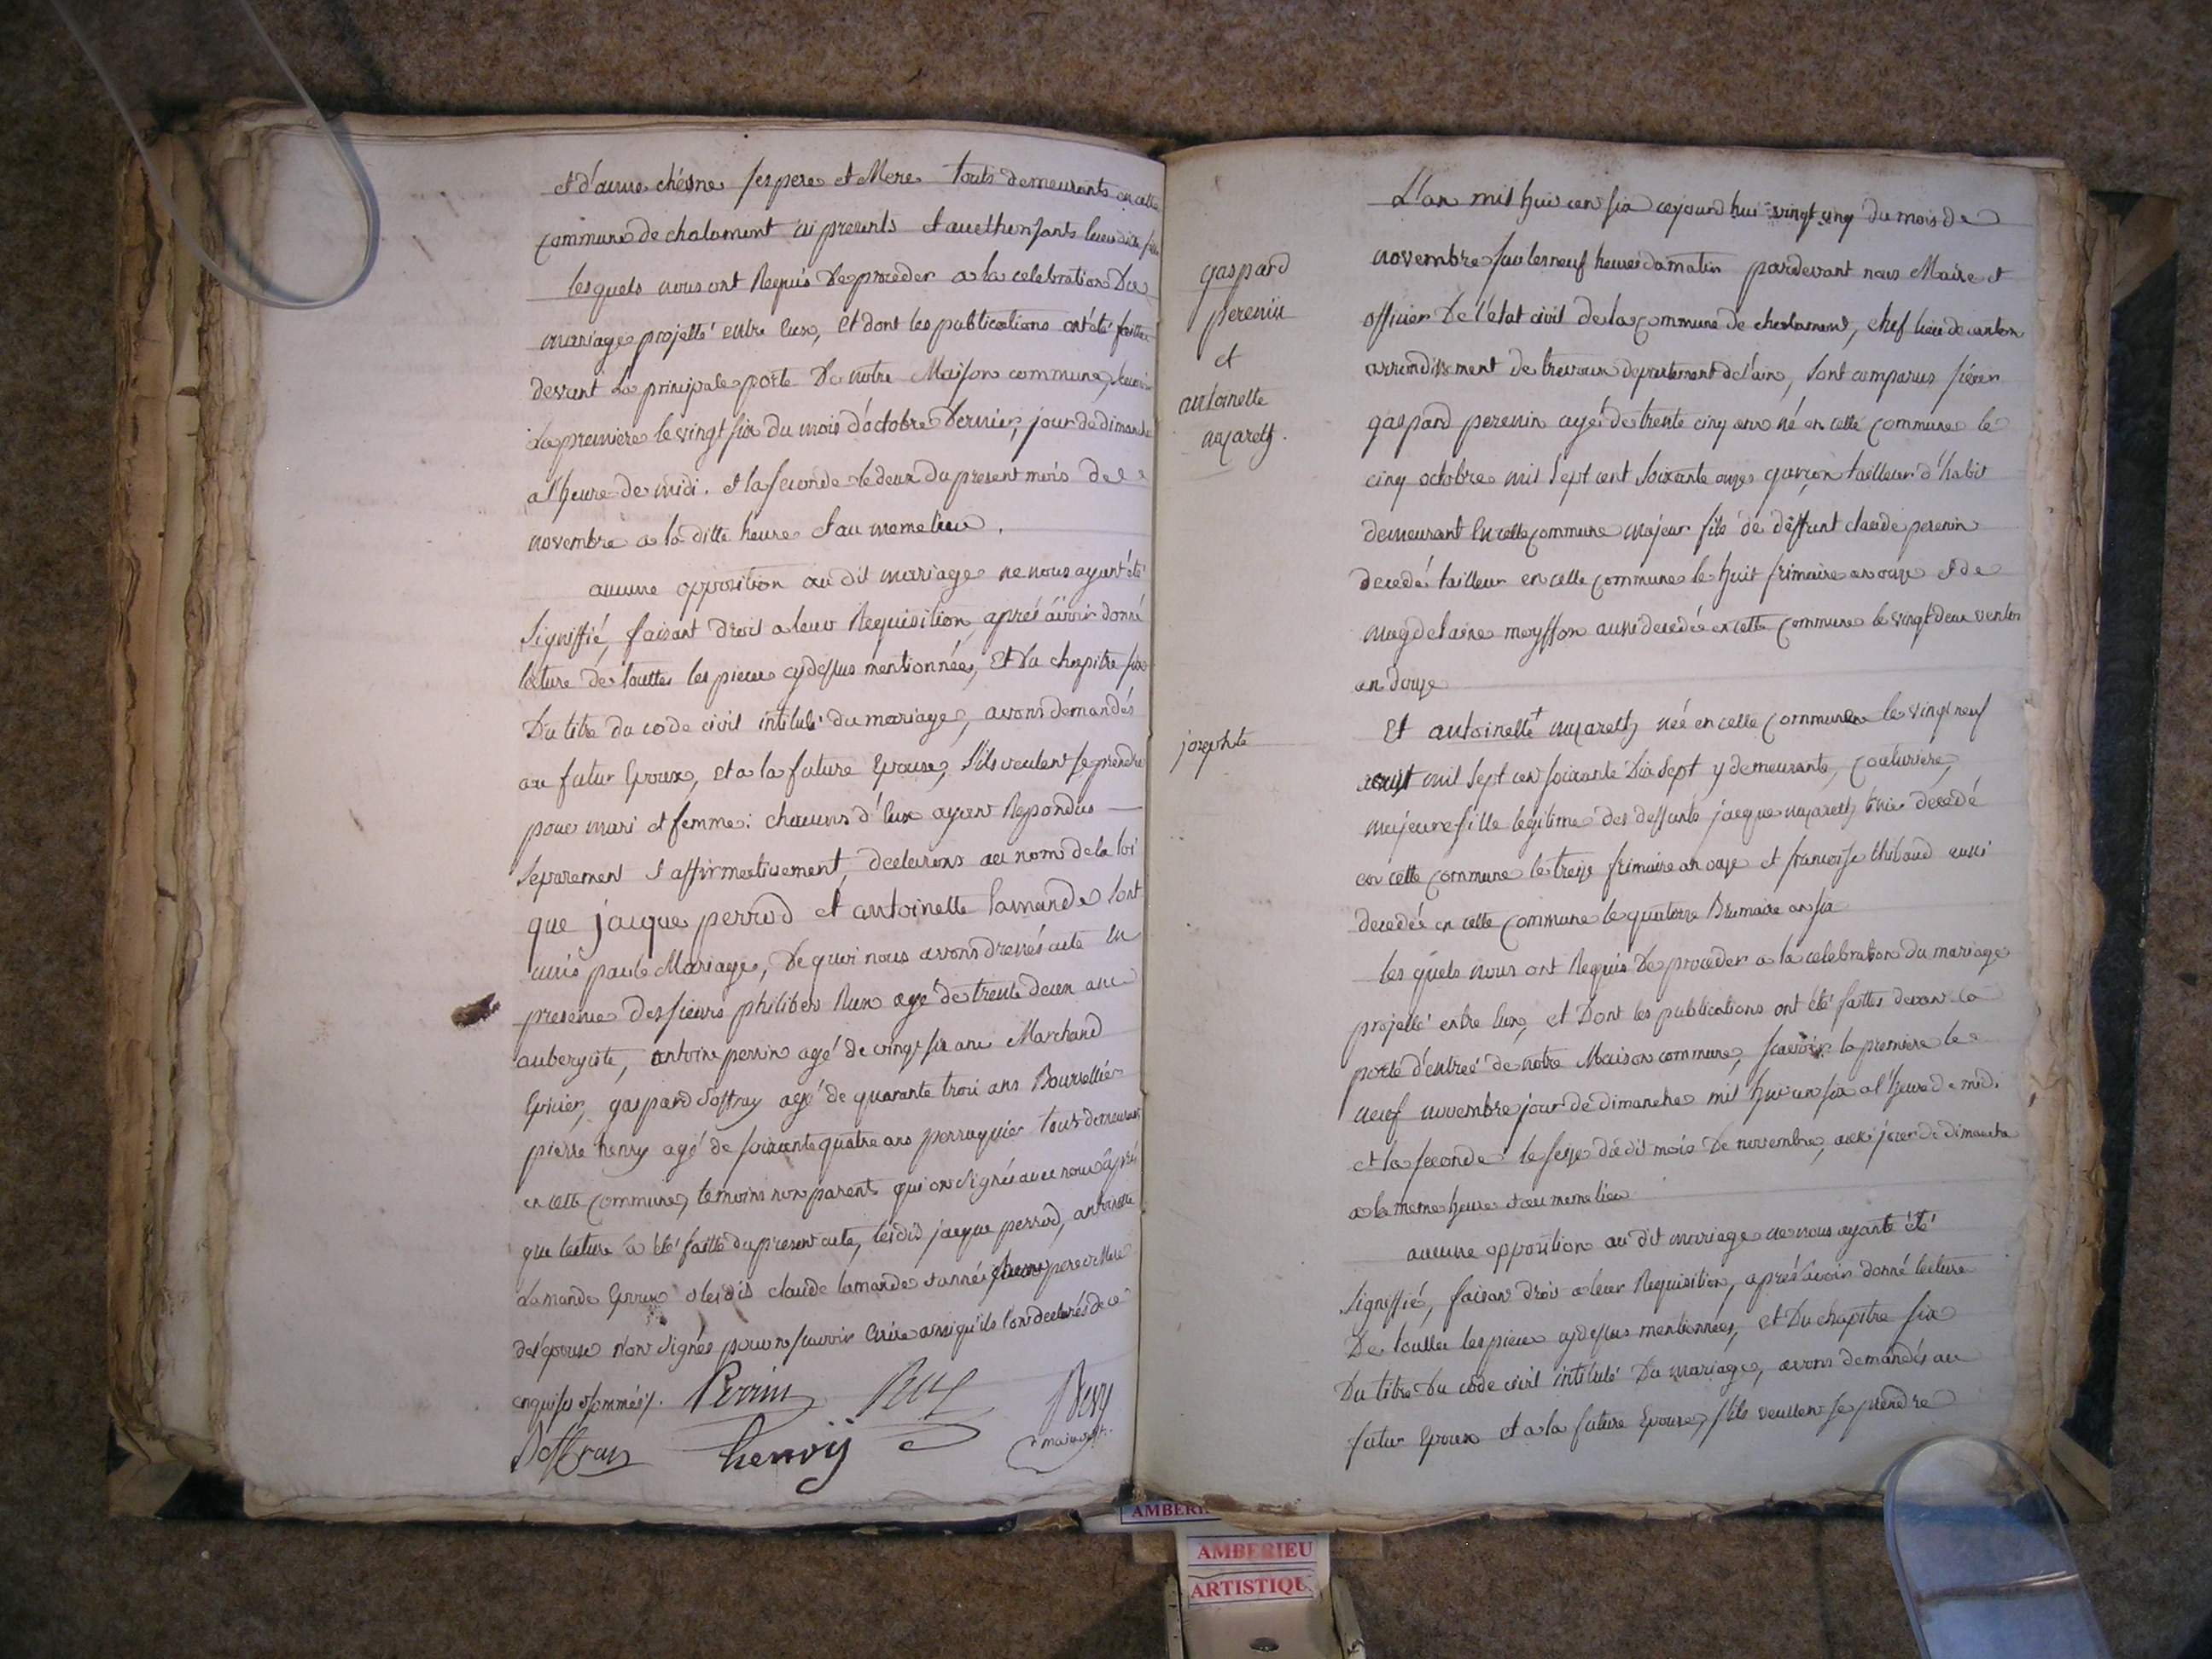 et d'anne chésne ses pere et Mere touts demeurants en cette
commune de chalamont ici presents et autherisants leur ditte fille
lesquels nous ont Requis De proceder a la celebration Du
mariage projetté entre Eux, Et dont les publications ont été faittes
devant La principale porte De notre Maison commune, scavoir
La premiere le vingt six du mois d'octobre Dernier, jour de dimanche
a l'heure de midi. et la seconde le deux du present mois de
novembre a la ditte heure et au meme lieu.
aucune opposition au dit mariage ne nous ayant été
signiffié, faisant droit a leur Requisition, aprés avoir donné
lecture de touttes les pieces cy dessus mentionnées, Et Du chapitre six
Du titre du code civil intitulé du mariage, avons demandés
au futur Epoux, et a la future Epouse, s'ils veulent se prendre
pour mari et femme: chacuns d'Eux ayant Repondus
separement et affirmativement, declarons au nom de la loi
que jacque perrod et antoinette lamande sont
unis par le Mariage, De quoi nous avons dressés acte En
presence des sieurs philiber Rux agé de trente deux ans
aubergiste, antoine perrin agé de vingt six ans Marchand
Epicier, gaspard Soffray agé de quarante trois ans Bourrellier
pierre henry agé de soixante quatre ans perruquier tous demeurant
en cette commune, temoins non parents qui on signés avec nous aprés
que lecture a été faitte du present acte, lesdis jacque perrod, antoinette
Lamande Epoux et les dis claude lamande et anne pere et Mere
de l'epouse n'on signés pour ne scavoir Ecrire ainsi qu'ils l'on declarés de ce
enquis et sommés.
Perrin
henrÿ
gaspard
perenin
et
antoinette
josephte
L'an mil huit cent six cejourd'hui vingt cinq du mois de
novembre sur les neuf heures du matin pardevant nous Maire et
officier De l'état civil de la commune de chalamont, chef lieu de canton
arrondissement de trevoux departement de l'ain, sont comparus sieur
gaspard perenin agé de trente cinq ans né en cette commune le
cinq octobre mil sept cent soixante onze garçon tailleur d'habit
demeurant En cette commune majeur fils de deffunt claude perenin
decedé tailleur en cette commune le huit frimaire an onze et de
magdelaine moysson aussi decedée en cette commune le vingt deux ventos
an douze
Et antoinette + née en cette commune le vingt neuf
aoust mil sept cent soixante Dix sept y demeurante, couturiere,
majeure fille legitime des deffunts jacque decedé
en cette commune le treize frimaire an onze et francoise thibaud aussi
decedée en cette commune le quatorze Brumaire an six
les quels nous ont Requis De proceder a la celebration du mariage
projetté entre Eux, et Dont les publications ont été faittes devant la
porte d'entreé de notre Maison commune, scavoir la premiere le
neuf novembre jour de dimanche mil huit cen six a l'heure de midi
et la seconde le seize du dit mois De novembre, aussi jour de dimanche
a la meme heure et au meme lieu
aucune opposition au dit mariage ne nous ayante été
signiffié, faisan droit a leur Requisition, aprés avoir donné lecture
De touttes les pieces cy dessus mentionnées, et Du chapitre six
Du titre Du code civil intitulé Du mariage, avons demandés au
futur Epoux et a la future Epouse, s'ils veullent se prendre
AMBERIEU
ARTISTIQU